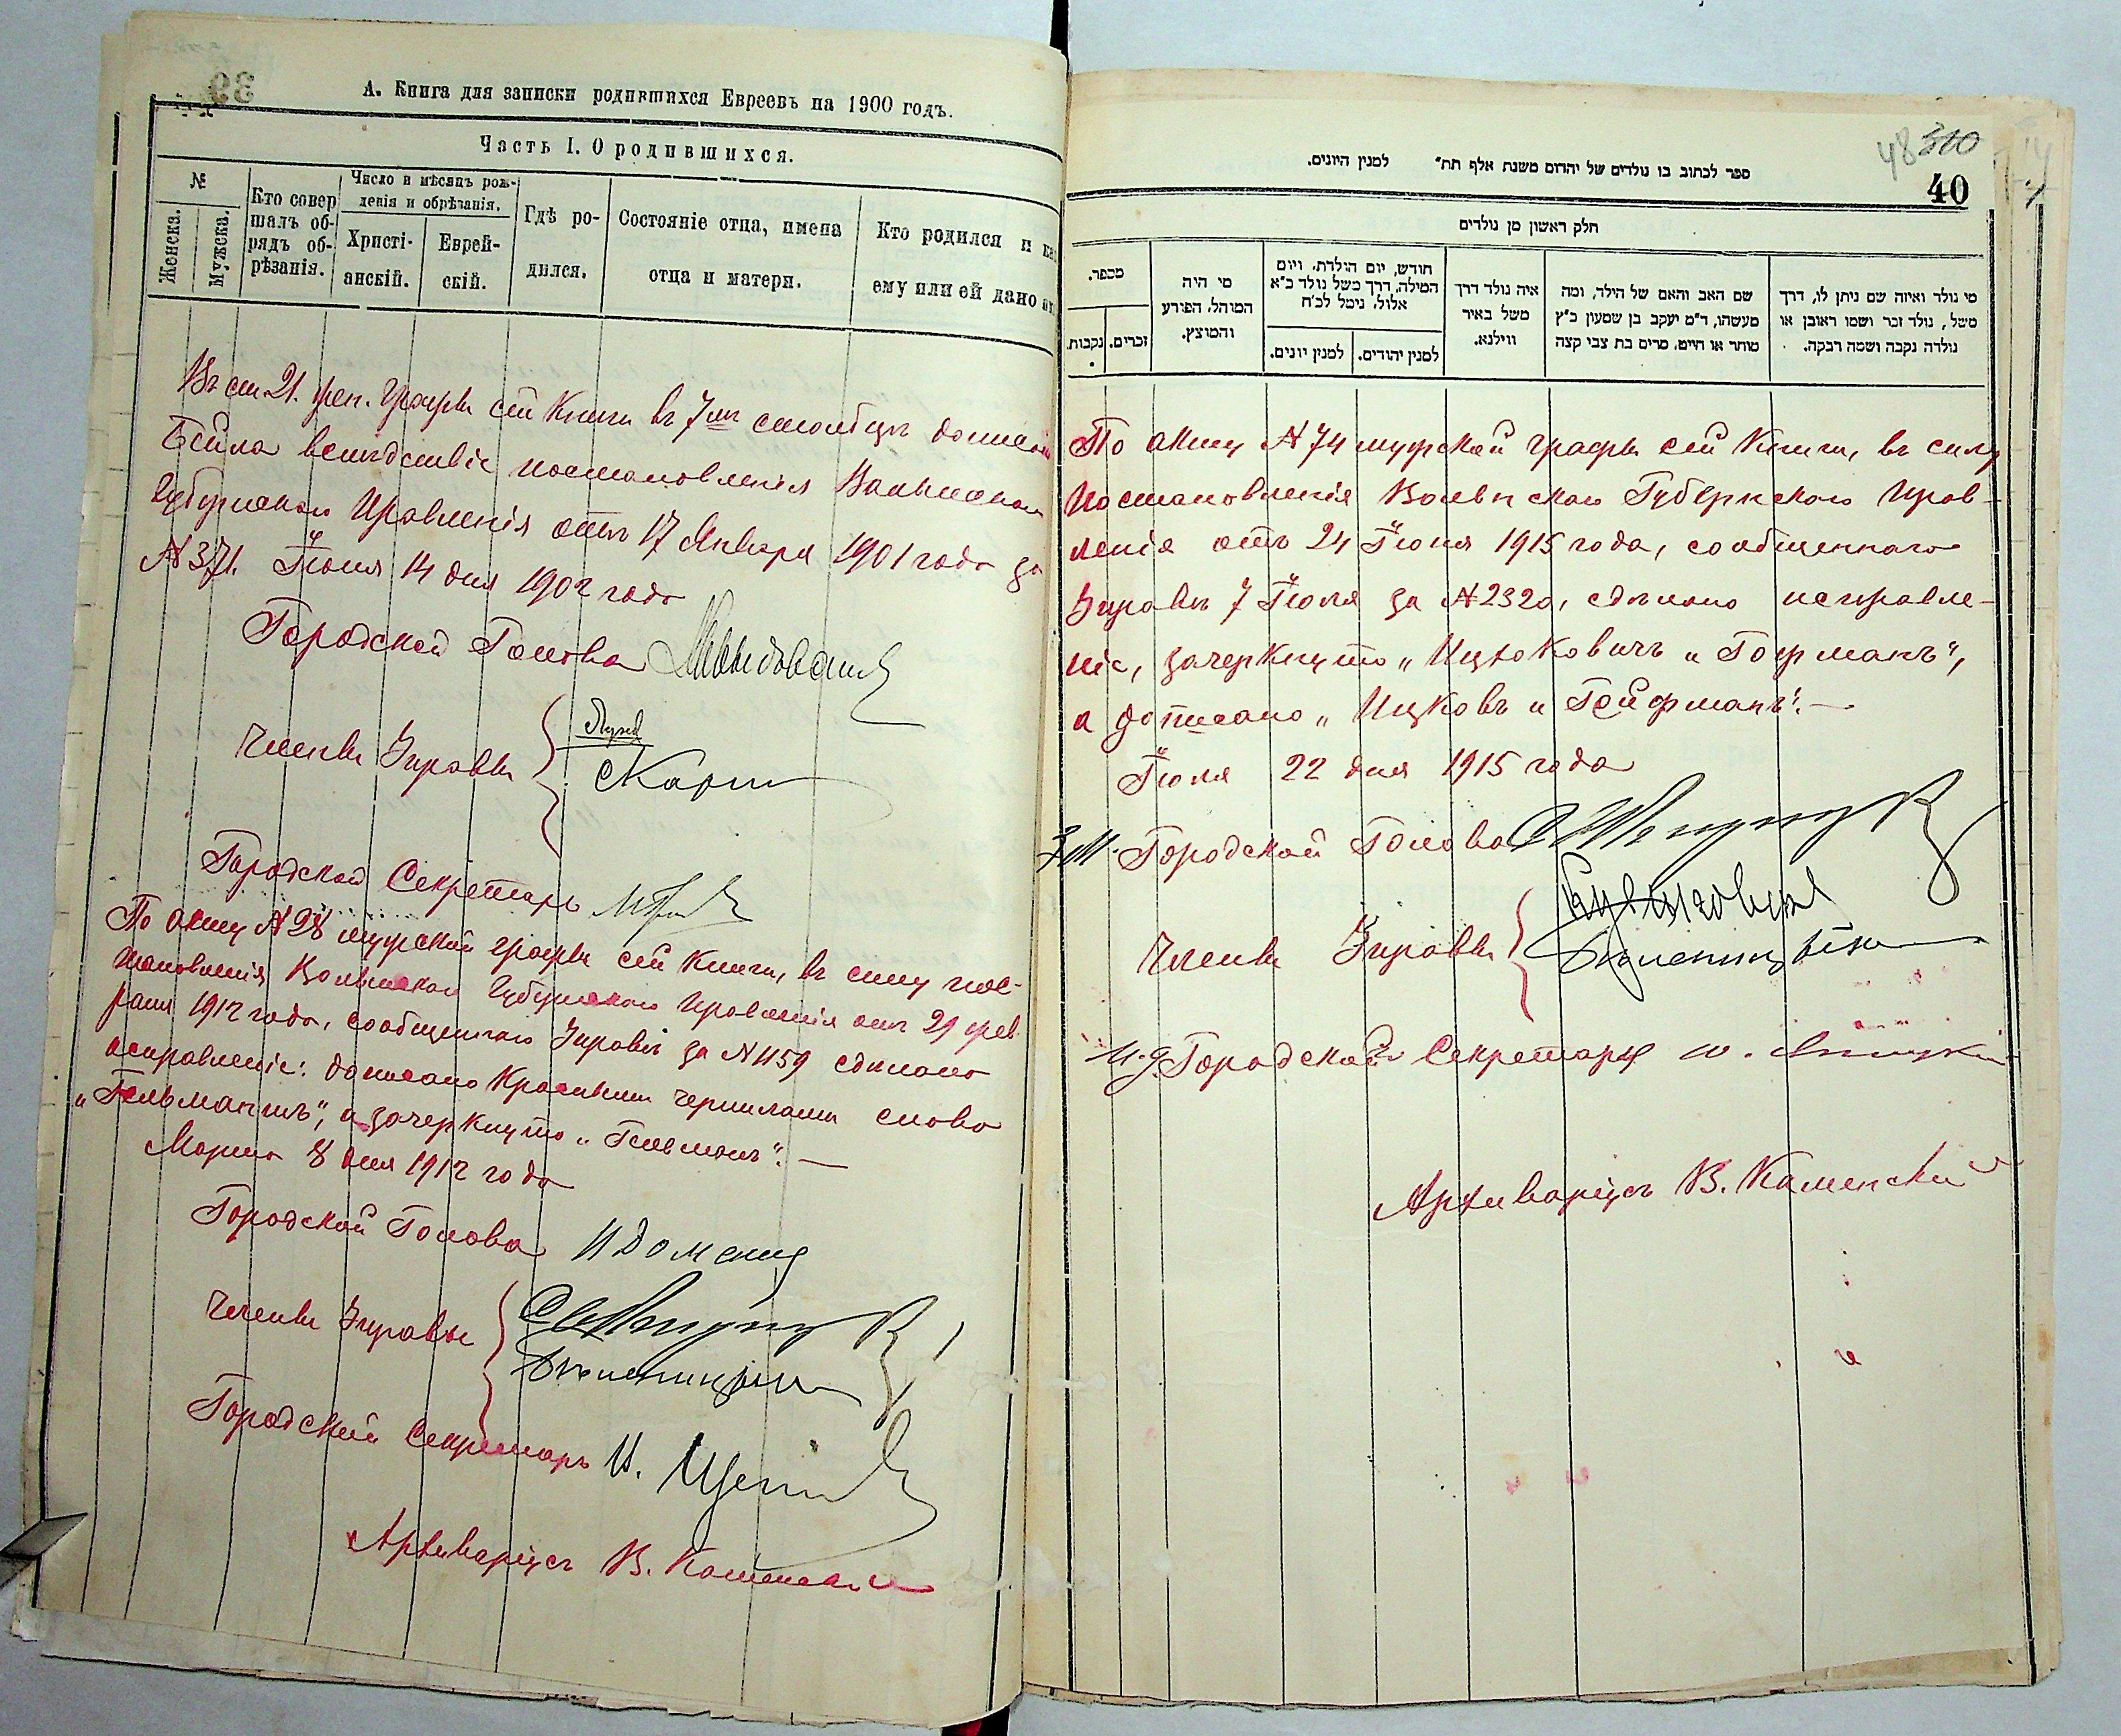 39
А. Книга для записки родившихся Евреевъ на 1900 годъ.
Часть I. О родившихся.
№
Женска.
Мужска.
Кто совер
шалъ об-
рядъ об-
рѣзанія.
Число и мѣсяцъ рож-
денія и обрѣзанія.
Христі-
анскій.
Еврей-
скій.
Гдѣ ро-
дился.
Состояніе отца, имена
отца и матери.
Кто родился и ка
ему или ей дано
Въ ст 21. жен. графы сей Книги въ 7мъ столбцѣ дописано
Бейла вслѣдствіе постановленія Волынскаго
Губернскаго Правленія отъ 17 Января 1901 года за
№ 371. Іюня 14 дня 1902 года
Городской Голова
Члены Управы
Городской Секретарь
По акту № 28 мужской графы сей книги, въ силу пос-
тановленія Волынскаго Губернскаго Правленія отъ 29 фев-
раля 1912 года, сообщеннаго Управѣ за № 1159 сдѣлано
исправленіе: дописано красными чернилами слово
„Гельманъ", а зачеркнуто „Гельманъ". —
Марта 8 дня 1912 года
Городской Голова
Члены Управы
Городской Секретарь И.
Архиваріусъ В. Каменскій
48 310
40
ספר לכתוב בו נולדים של יהדום משנת אלף תת״ למנין היונים.
חלק ראשון מן נולדים
מספר.
נקבות.
זכרים.
מי היה
המוהל, הפורע
והמוצץ.
חודש, יום הולדת, ויום
המילה, דרך משל נולד כ״א
אלול, נימל לכ״ח
למנין יונים.
למנין יהודים.
איה נולד דרך
משל באיר
ווילנא.
שם האב והאם של הילד, ומה
מעשהו, ד״מ יעקב בן שמעון כ״ץ
סוחר או חייט, מרים בת צבי קצה
מי נולד ואיזה שם ניתן לו, דרך
משל, נולד זכר ושמו ראובן או
נולדה נקבה ושמה רבקה.
По акту № 74 мужской графы сей Книги, въ силу
Постановленія Волынскаго Губернскаго Прав-
ленія отъ 24 Іюня 1915 года, сообщеннаго
Управѣ 7 Іюля за № 2320, сдѣлано исправле-
ніе, зачеркнуто „Ицковичъ „Гофманъ",
а дописано „Ицковъ и Гойфманъ". —
Іюля 22 дня 1915 года
З.М. Городской Голова
Члены Управы
И.д. Городского Секретаря
Архиваріусъ В. Каменскій